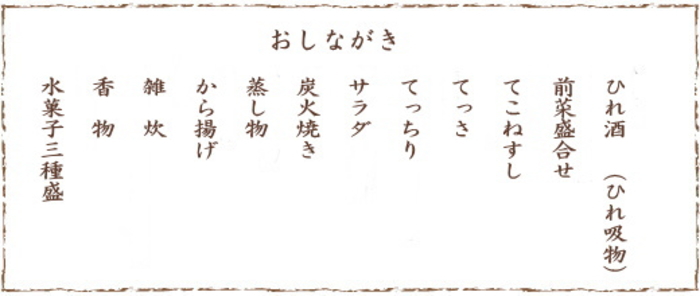 おしながき
ひれ酒　（ひれ吸物）
前菜盛合せ
てこねすし
てっさ
てっちり
サラダ
炭火焼き
蒸し物
から揚げ
雑　炊
香　物
水菓子三種盛